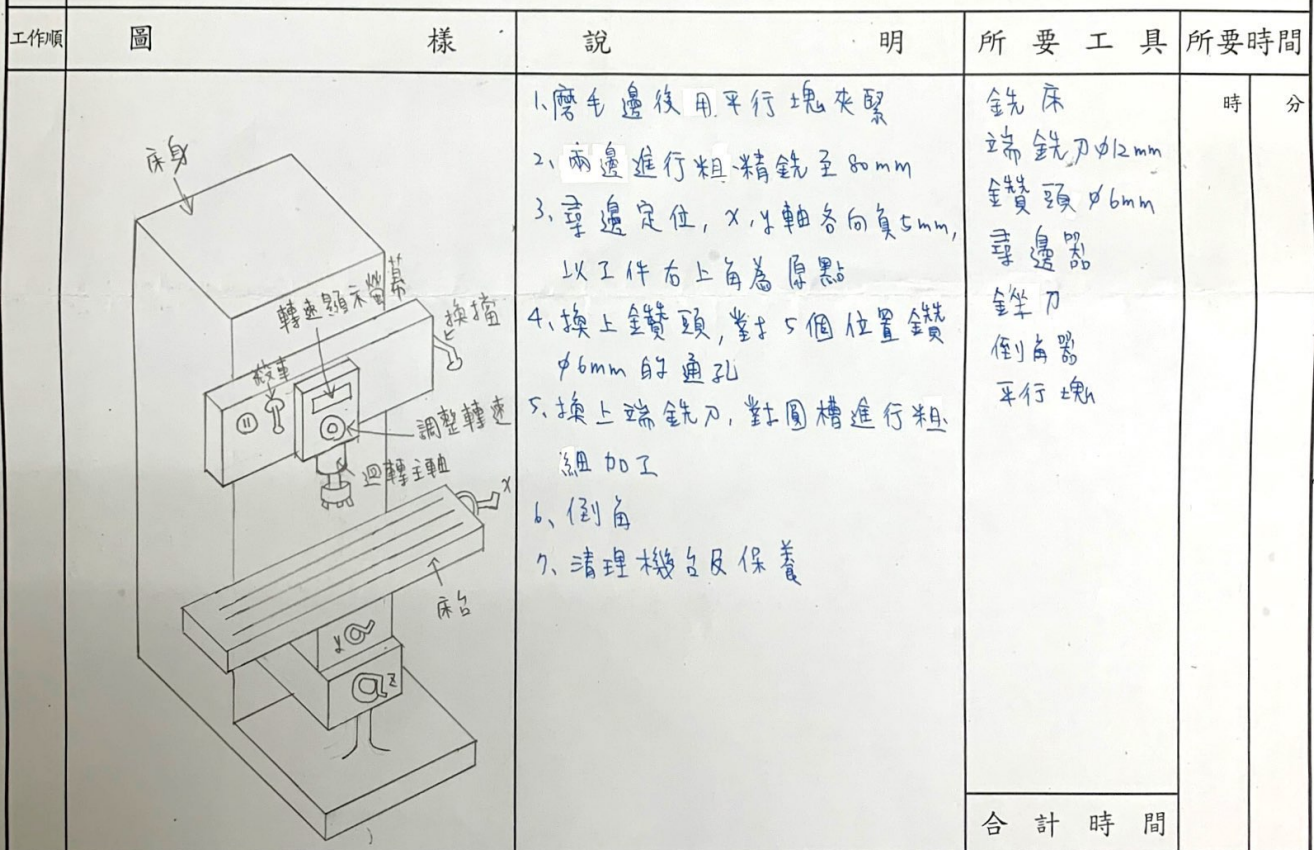 工作順 圖樣 說明 所要工具 所要時間
時 分
床身
轉速顯示螢幕
換擋
調整轉速
迴轉主軸
x
床台
y
z
1、磨毛邊後用平行塊夾緊
2、兩邊進行粗、精銑至80mm
3、尋邊定位,x、y軸各向負5mm,
以工件右上角為原點
4、換上鑽頭,對5個位置鑽
φ6mm的通孔
5、換上端銑刀,對圓槽進行粗
細加工
6、倒角
7、清理機台及保養
銑床
端銑刀φ12mm
鑽頭φ6mm
尋邊器
銼刀
倒角器
平行塊
合計時間